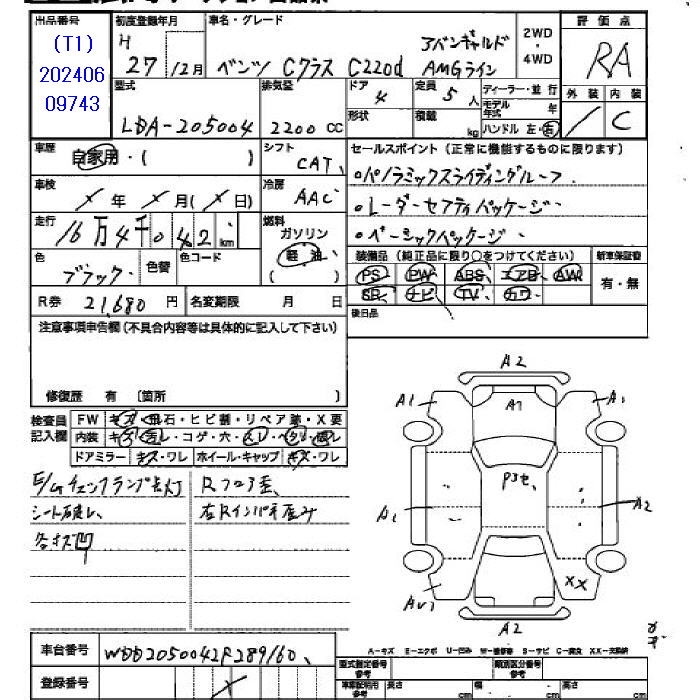 出品番号
(T1)
202406
09743
初度登録年月
H
27/12月
車名・グレード
アバンギャルド
ベンツ Cクラス C220d AMGライン
2WD
・
4WD
評価点
RA
外装 内装
/ C
型式
LDA-205004
排気量
2200 cc
ドア
4
形状
定員
5人
積載
kg
ディーラー・並行
モデル年式 年
ハンドル 左・右
車歴
自家用・( )
シフト
CAT
セールスポイント(正常に機能するものに限ります)
・パノラミックスライディングルーフ
・レーダーセフティパッケージ
・ベーシックパッケージ
車検
X年X月(X日)
冷房
AAC
走行
16万4千042km
燃料
ガソリン
軽油
( )
色
ブラック
色替
色コード
装備品(純正品に限り○をつけてください)
新車保証書
PS PW ABS エアB AW
SR ナビ TV カワ
有・無
R券 21,680円
名変期限 月 日
後日品
注意事項申告欄(不具合内容等は具体的に記入して下さい)
修復歴 有 〔箇所 〕
検査員
記入欄
FW キズ・飛石・ヒビ割・リペア跡・X要
内装 キズ・汚レ・コゲ・穴・スレ・ヘタリ・破レ
ドアミラー キズ・ワレ ホイール・キャップ キズ・ワレ
E/Gチェックランプ点灯
シート破レ、
各キズ凹
Rフロア歪
右Rインパネ歪み
A2
A1
A1
A1
A1
A2
AU1
XX
A2
A-キズ E-エクボ U-凹ミ W-補修春 S-サビ C-腐食 XX-交換済
車台番号 WDD2050042F289160
登録番号
型式指定番号
参考
類別区分番号
参考
車車証明用
参考
長さ cm 幅 cm 高さ cm